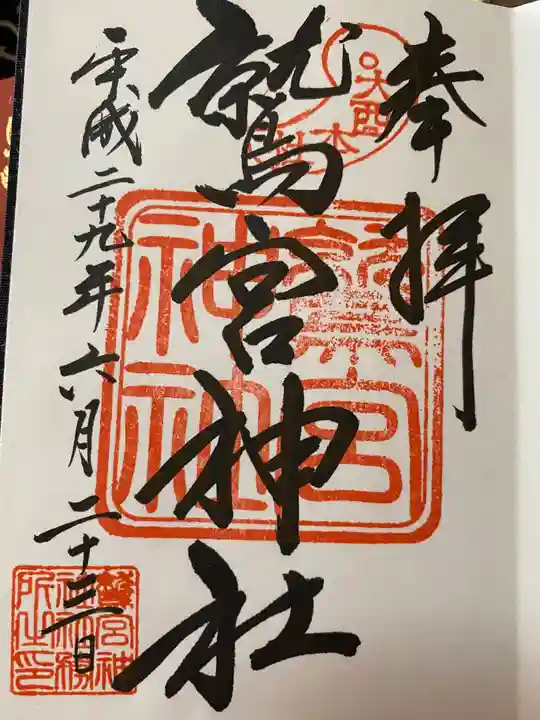 奉拝
鷲宮神社
平成二十九年六月二十三日
鷲宮神社
鷲宮神社社務所之印